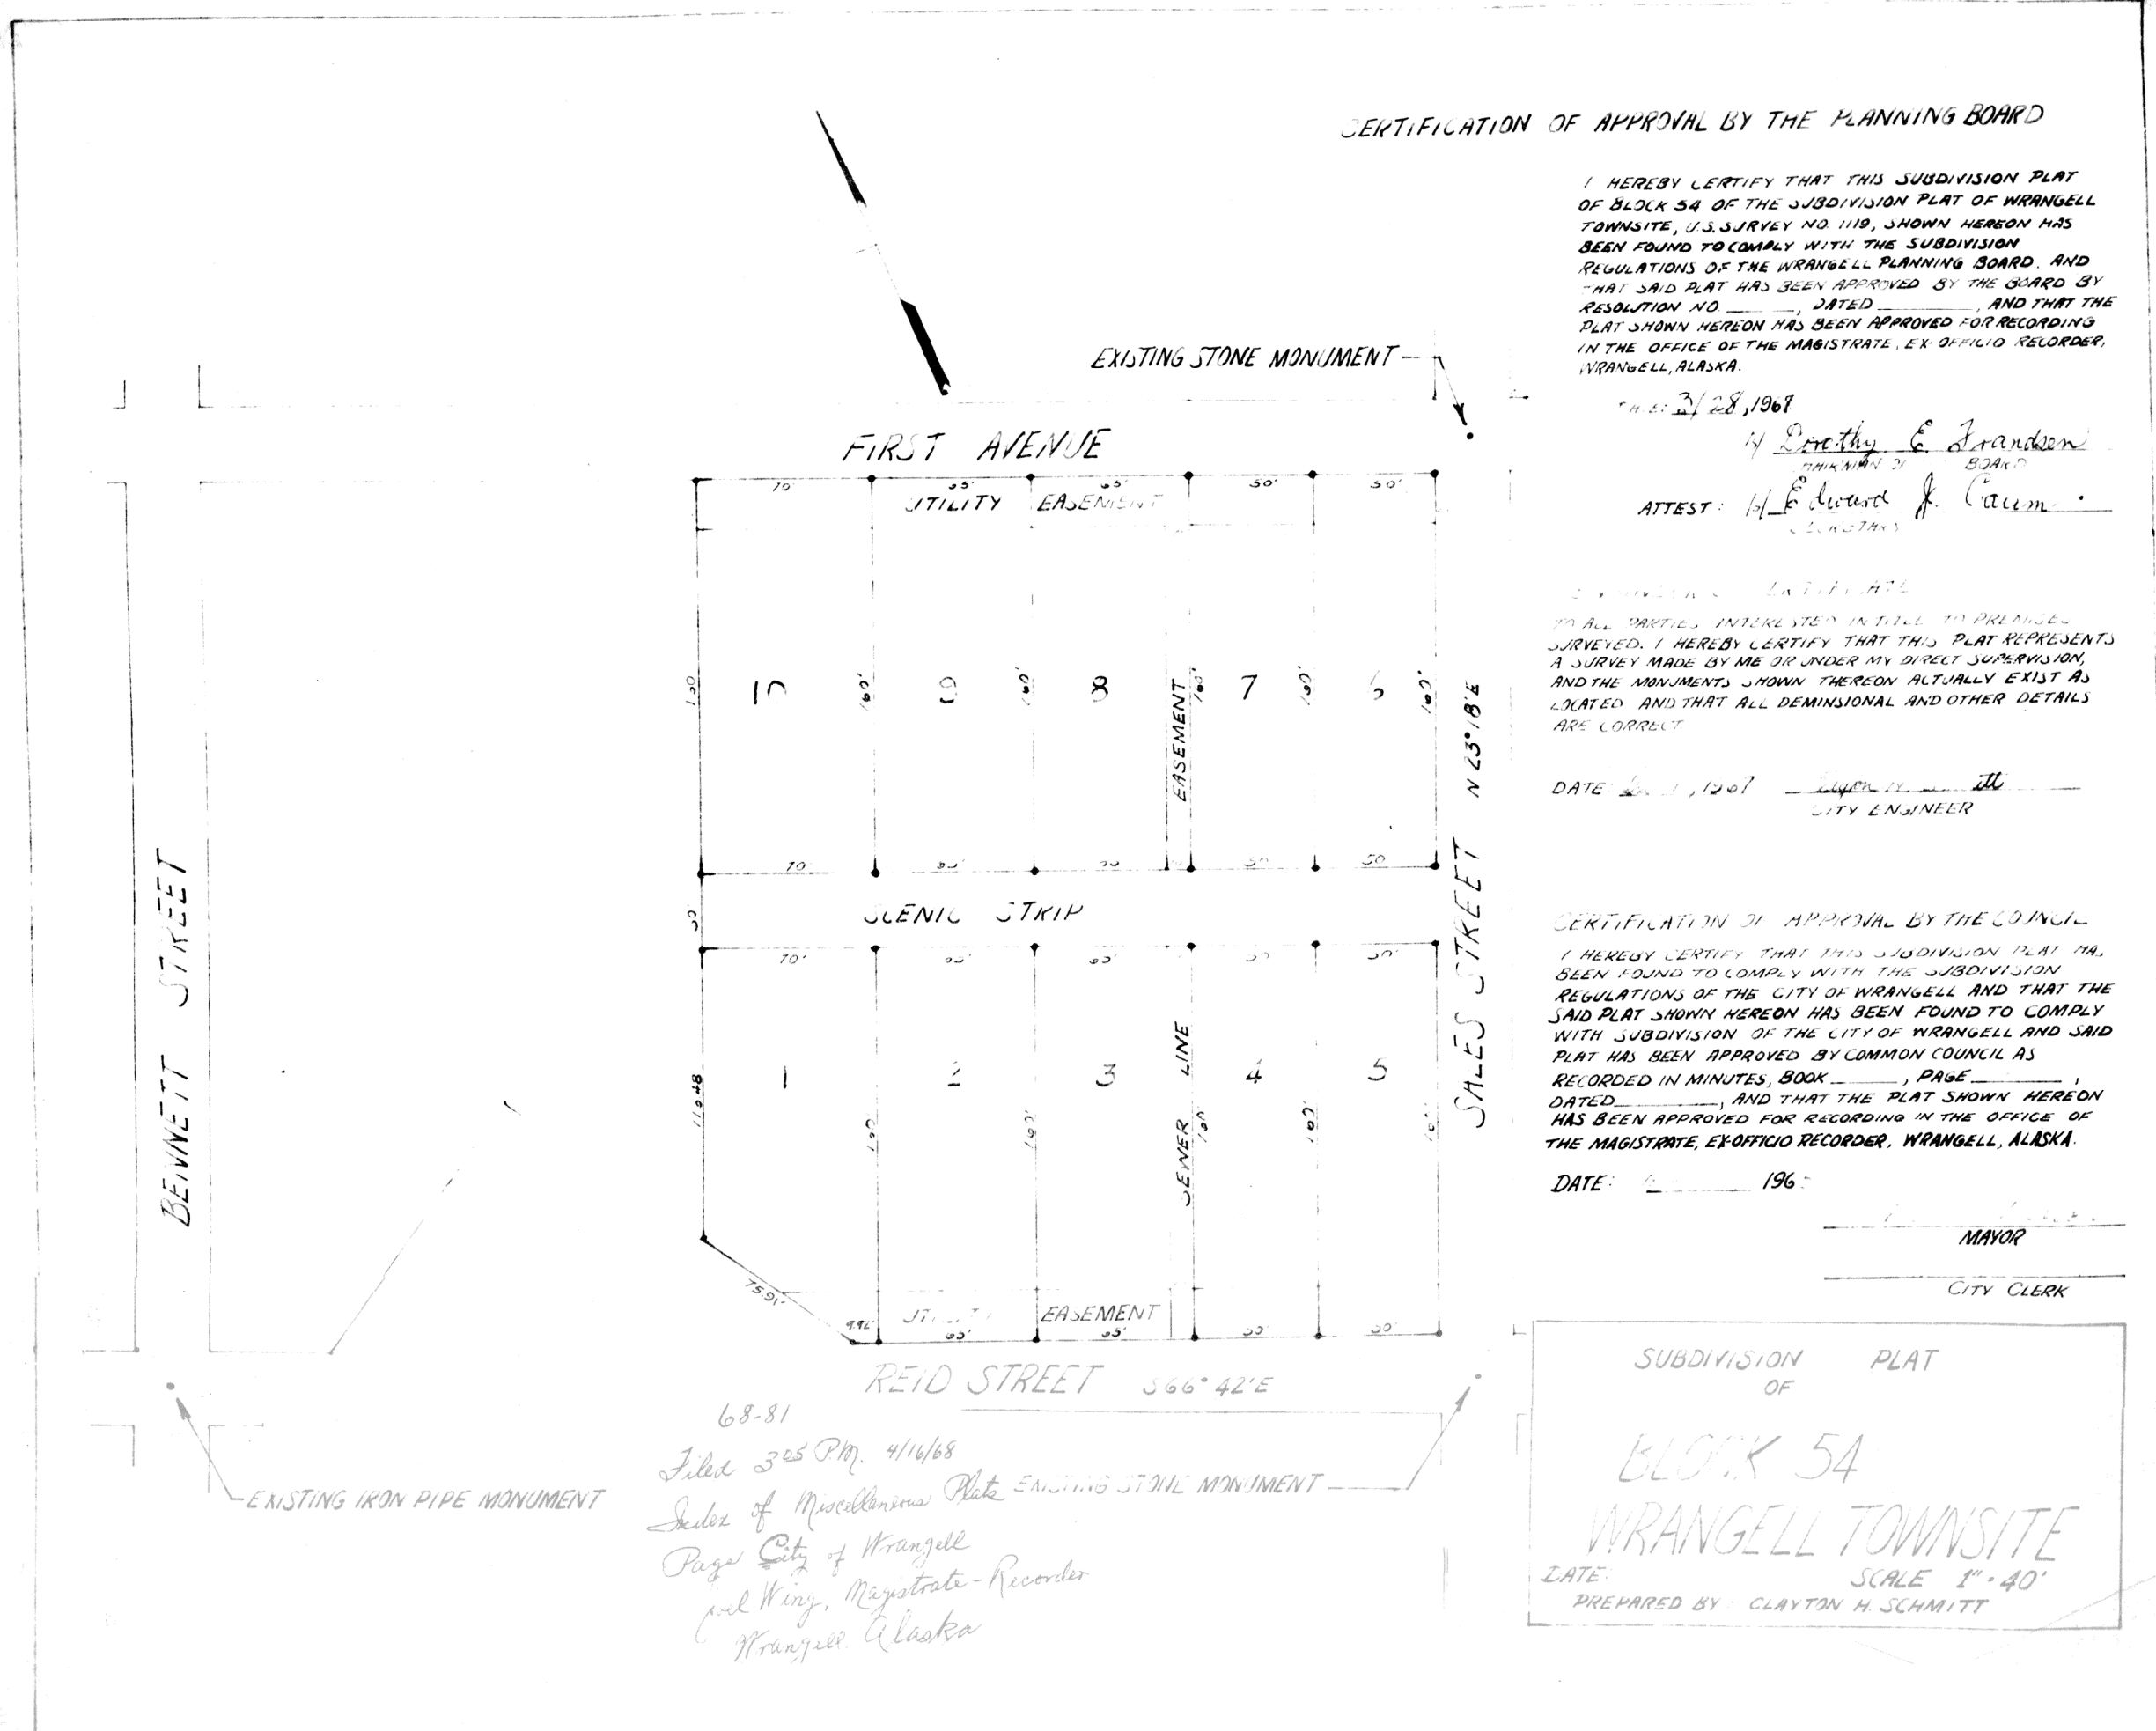 CERTIFICATION OF APPROVAL BY THE PLANNING BOARD
I HEREBY CERTIFY THAT THIS SUBDIVISION PLAT
OF BLOCK 54 OF THE SUBDIVISION PLAT OF WRANGELL
TOWNSITE, U.S. SURVEY NO. 1119, SHOWN HEREON HAS
BEEN FOUND TO COMPLY WITH THE SUBDIVISION
REGULATIONS OF THE WRANGELL PLANNING BOARD. AND
THAT SAID PLAT HAS BEEN APPROVED BY THE BOARD BY
RESOLUTION NO. ____, DATED ________, AND THAT THE
PLAT SHOWN HEREON HAS BEEN APPROVED FOR RECORDING
IN THE OFFICE OF THE MAGISTRATE, EX-OFFICIO RECORDER,
WRANGELL, ALASKA.
3/28, 1967
/s/ Dorothy E. Frandsen
CHAIRMAN OF BOARD
ATTEST: /s/ Edward J.
SECRETARY
TO ALL PARTIES INTERESTED IN TITLE TO PREMISES
SURVEYED. I HEREBY CERTIFY THAT THIS PLAT REPRESENTS
A SURVEY MADE BY ME OR UNDER MY DIRECT SUPERVISION,
AND THE MONUMENTS SHOWN THEREON ACTUALLY EXIST AS
LOCATED AND THAT ALL DEMINSIONAL AND OTHER DETAILS
ARE CORRECT
DATE , 1967
CITY ENGINEER
CERTIFICATION OF APPROVAL BY THE COUNCIL
I HEREBY CERTIFY THAT THIS SUBDIVISION PLAT HAS
BEEN FOUND TO COMPLY WITH THE SUBDIVISION
REGULATIONS OF THE CITY OF WRANGELL AND THAT THE
SAID PLAT SHOWN HEREON HAS BEEN FOUND TO COMPLY
WITH SUBDIVISION OF THE CITY OF WRANGELL AND SAID
PLAT HAS BEEN APPROVED BY COMMON COUNCIL AS
RECORDED IN MINUTES, BOOK ______, PAGE ________,
DATED ________, AND THAT THE PLAT SHOWN HEREON
HAS BEEN APPROVED FOR RECORDING IN THE OFFICE OF
THE MAGISTRATE, EX-OFFICIO RECORDER, WRANGELL, ALASKA.
DATE: ________ 196
MAYOR
CITY CLERK
SUBDIVISION PLAT
OF
BLOCK 54
WRANGELL TOWNSITE
DATE: SCALE 1" = 40'
PREPARED BY CLAYTON H. SCHMITT
EXISTING STONE MONUMENT
FIRST AVENUE
70' 65' 65' 50' 50'
UTILITY EASEMENT
160' 160' 160' 160' 160' 160'
10 9 8 7 6
EASEMENT
N 23° 18' E
70' 65' 50 50
SCENIC STRIP
70' 65' 65' 50 50'
1 2 3 4 5
110.48
160' 160' 160' 160' 160'
SEWER LINE
SALES STREET
BENNETT STREET
75.91'
UTILITY EASEMENT
65' 65' 50' 50'
REID STREET S 66° 42' E
68-81
Filed 3:05 P.M. 4/16/68
Index of Miscellaneous Plats
Page City of Wrangell
Wing, Magistrate-Recorder
Wrangell Alaska
EXISTING STONE MONUMENT
EXISTING IRON PIPE MONUMENT